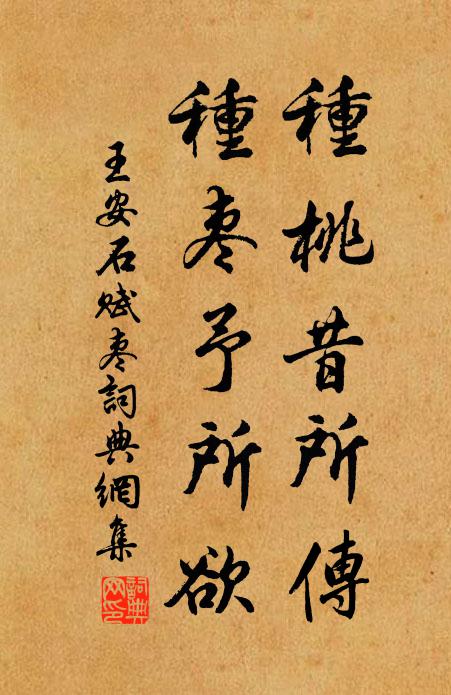 種桃昔所傳
種枣予所欲
王安石赋枣詞典網集
詞典网印